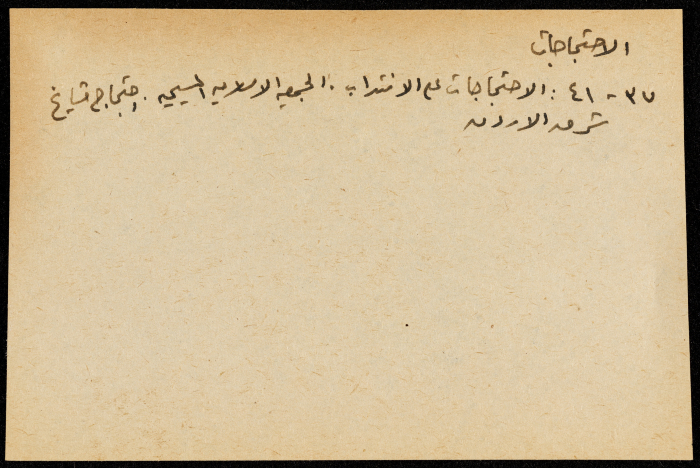 الاحتجاجات
٣٧ - ٤١ : الاحتجاجات على الانتداب . الجمعيه الاسلاميه المسيحيه . احتجاج مشايخ
شرق الاردن